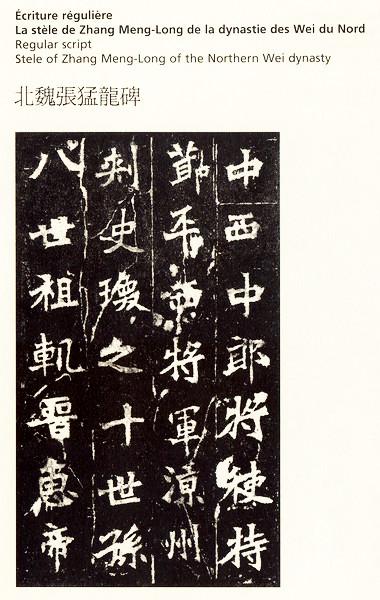 Écriture régulière
La stèle de Zhang Meng-Long de la dynastie des Wei du Nord
Regular script
Stele of Zhang Meng-Long of the Northern Wei dynasty
北魏張猛龍碑
中西中郎將使持
節平西將軍涼州
刾史瑍之十世孫
八世祖軌晉惠帝